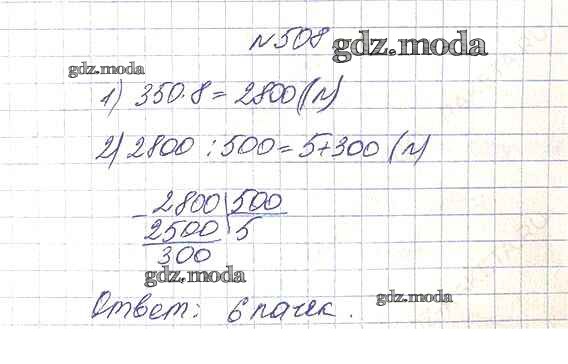 №508
gdz.moda
gdz.moda
1) 350·8=2800(л)
2) 2800:500=5+300 (л)
- 2800 | 500
2500 | 5
300
gdz.moda
Ответ: 6 пачек.
gdz.moda